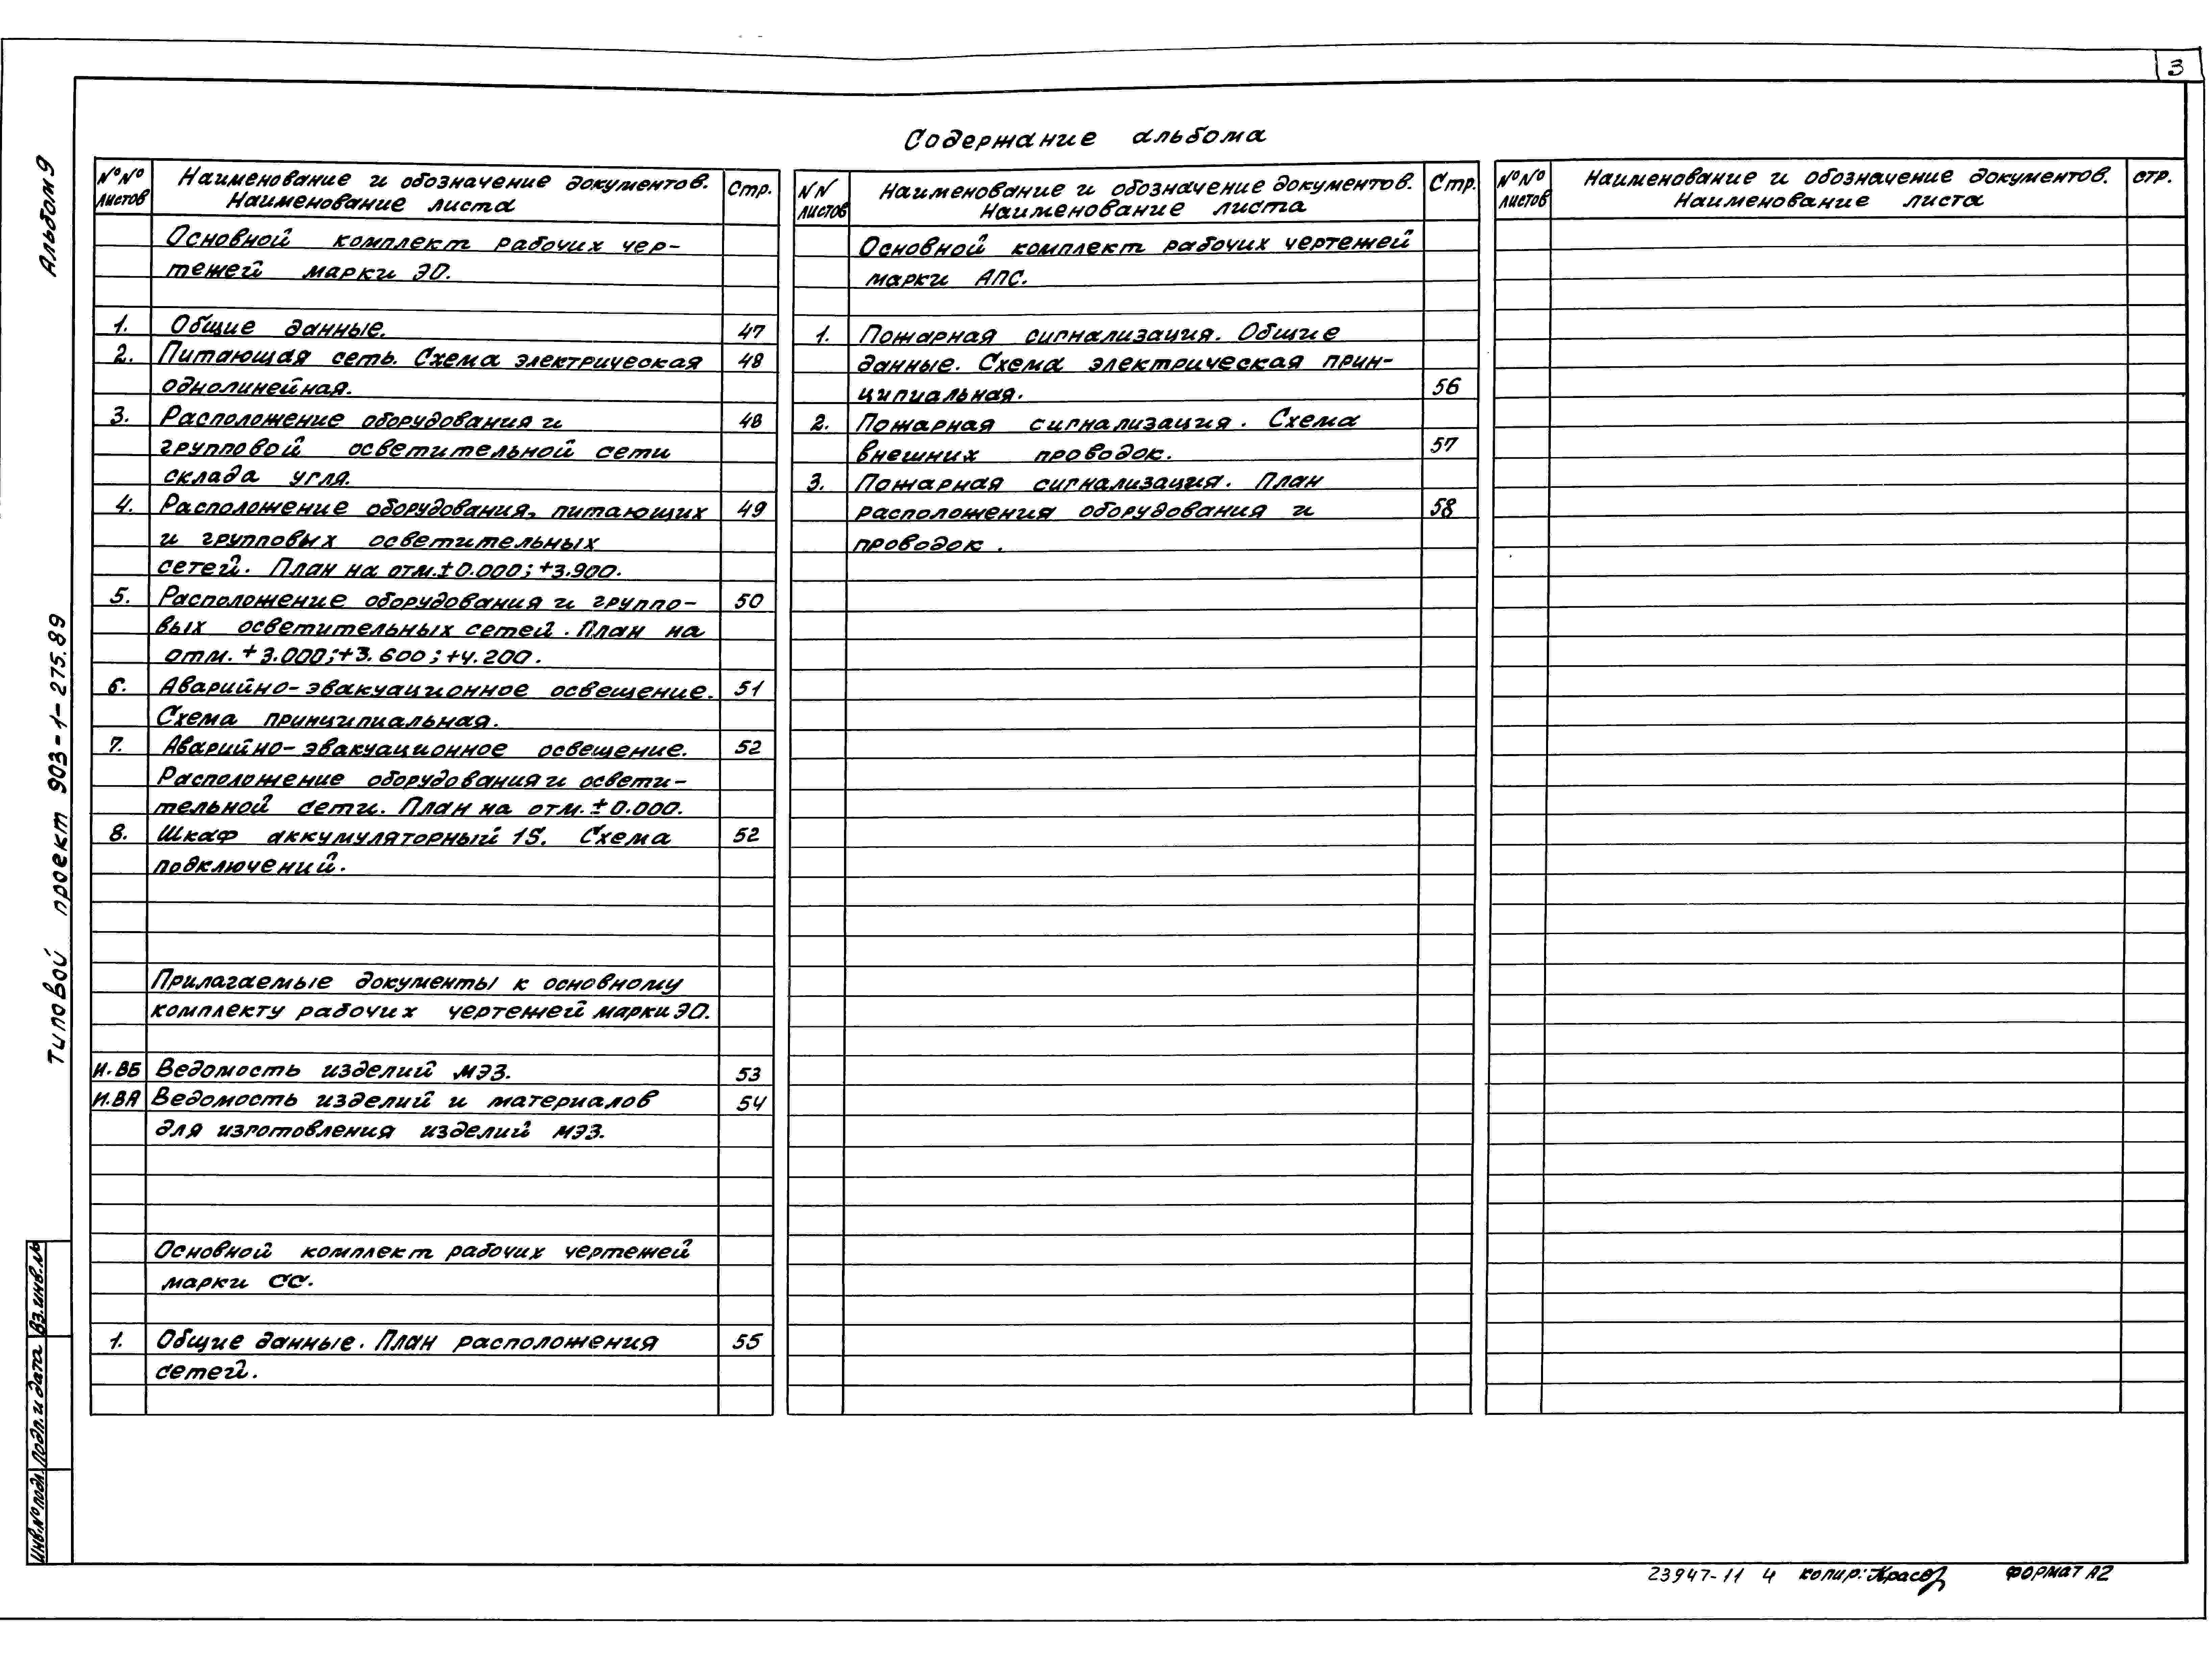 3
Содержание альбома
Альбом 9
Типовой проект 903-1-275.89
№№ листов
Наименование и обозначение документов.
Наименование листа
Стр.
Основной комплект рабочих чер-
тежей марки ЭО.
1. Общие данные. 47
2. Питающая сеть. Схема электрическая 48
однолинейная.
3. Расположение оборудования и 48
групповой осветительной сети
склада угля.
4. Расположение оборудования, питающих 49
и групповых осветительных
сетей. План на отм.±0.000; +3.900.
5. Расположение оборудования и группо- 50
вых осветительных сетей. План на
отм. +3.000; +3.600; +4.200.
6. Аварийно-эвакуационное освещение. 51
Схема принципиальная.
7. Аварийно-эвакуационное освещение. 52
Расположение оборудования и освети-
тельной сети. План на отм. ±0.000.
8. Шкаф аккумуляторный 1S. Схема 52
подключений.
Прилагаемые документы к основному
комплекту рабочих чертежей марки ЭО.
И.ВБ Ведомость изделий МЭЗ. 53
И.ВА Ведомость изделий и материалов 54
для изготовления изделий МЭЗ.
Основной комплект рабочих чертежей
марки СС.
1. Общие данные. План расположения 55
сетей.
NN листов
Наименование и обозначение документов.
Наименование листа
Стр.
Основной комплект рабочих чертежей
марки АПС.
1. Пожарная сигнализация. Общие
данные. Схема электрическая прин-
ципиальная. 56
2. Пожарная сигнализация. Схема
внешних проводок. 57
3. Пожарная сигнализация. План
расположения оборудования и 58
проводок.
№№ листов
Наименование и обозначение документов.
Наименование листа
стр.
Инв.№ подл. Подп. и дата Вз.инв.№
23947-11 4 копир: Формат А2